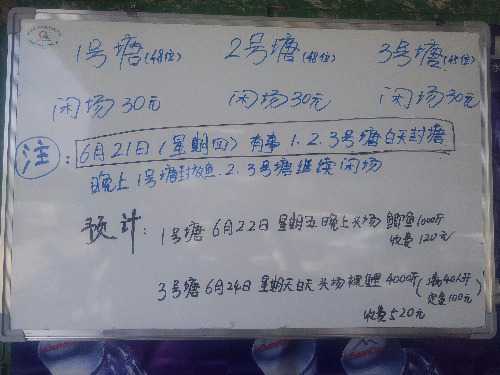 1号塘(48位) 2号塘(48位) 3号塘(45位)
闲场30元 闲场30元 闲场30元
注: 6月21日(星期四)有事1.2.3号塘白天封塘
晚上1号塘封放鱼.2.3号塘继续闲场
预计: 1号塘6月22日星期五晚上头场鲫鱼1000斤
收费120元
3号塘6月24日星期天白天头场 鲤4000斤(满40人开
定金100元)
收费520元